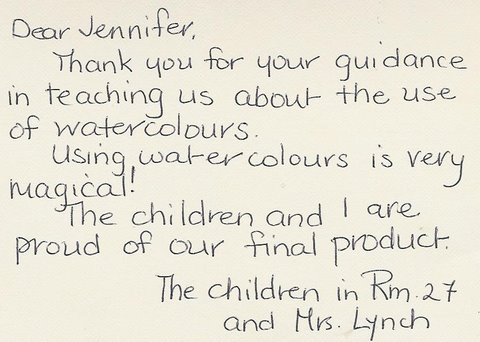 Dear Jennifer,
Thank you for your guidance
in teaching us about the use
of watercolours.
Using watercolours is very
magical!
The children and I are
proud of our final product.
The children in Rm. 27
and Mrs. Lynch